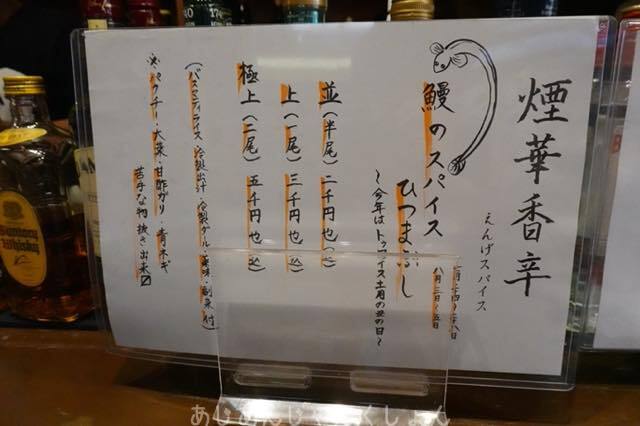 煙華香辛
えんげスパイス
鰻のスパイス
ひつまぶし
七月二十四〜二十八日
八月三日〜五日
〜今年はトゥワイス土用の丑の日〜
並(半尾)二千円也(込)
上(一尾)三千円也(込)
極上(二尾)五千円也(込)
(バスマティライス・冷製出汁・冷製ダル・薬味・副菜付)
※パクチー・大葉・甘酢ガリ・青ネギ
苦手な物抜き出来〼
Suntory
Whisky
あじあんじゃんくしょん